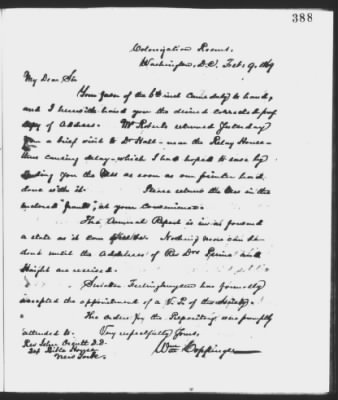 388
Colonization Rooms.
Washington, D.C. Feb. 9. 1869
My Dear Sir
Your favor of the 6th inst came duly to hand,
and I herewith hand you the desired corrected proof
copy of Address. Mr Roberts returned yesterday
from a brief visit to Dr Hall - near the Relay House -
thus causing delay - which I had hoped to save by
sending you the Mss as soon as our printer had
done with it. Please return the Mss in the
enclosed "frank", at your convenience.
The Annual Report is in as forward
a state as it can be. Nothing more can be
done until the Addresses of Rev Drs and
Haight are received.
Senator Frelinghuysen has formally
accepted the appointment of a V. P. of the Society.
The order for the Repository was promptly
attended to. Very respectfully Yours,
Rev John Orcutt D.D. Wm Coppinger
Bible House
New York.